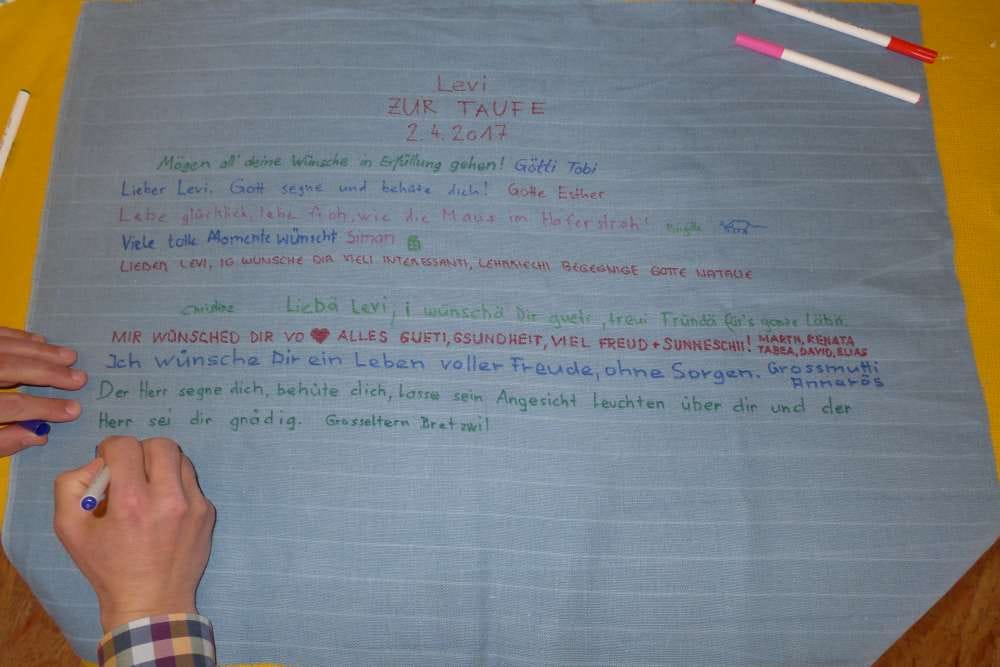 Levi
ZUR TAUFE
2.4.2017
Mögen all' deine Wünsche in Erfüllung gehen! Götti Tobi
Lieber Levi, Gott segne und behüte dich! Gotte Esther
Lebe glücklich, lebe froh, wie die Maus im Haferstroh! Brigitte
Viele tolle Momente wünscht Simon
LIEBEN LEVI, IG WÜNSCHE DIR VIELI INTERESSANTI, LEHRRIECHI BEGEGNIGE GOTTE NATALIE
Christine Liebä Levi, i wünschä Dir gueti, treui Fründä für's ganze Läbä.
MIR WÜNSCHED DIR VO ♥ ALLES GUETI, GSUNDHEIT, VIEL FREUD + SUNNESCHII! MARTN, RENATA
TABEA, DAVID, ELIAS
Ich wünsche Dir ein Leben voller Freude, ohne Sorgen. Grossmutti
Annerös
Der Herr segne dich, behüte dich, lasse sein Angesicht leuchten über dir und der
Herr sei dir gnädig. Grosseltern Bretzwil